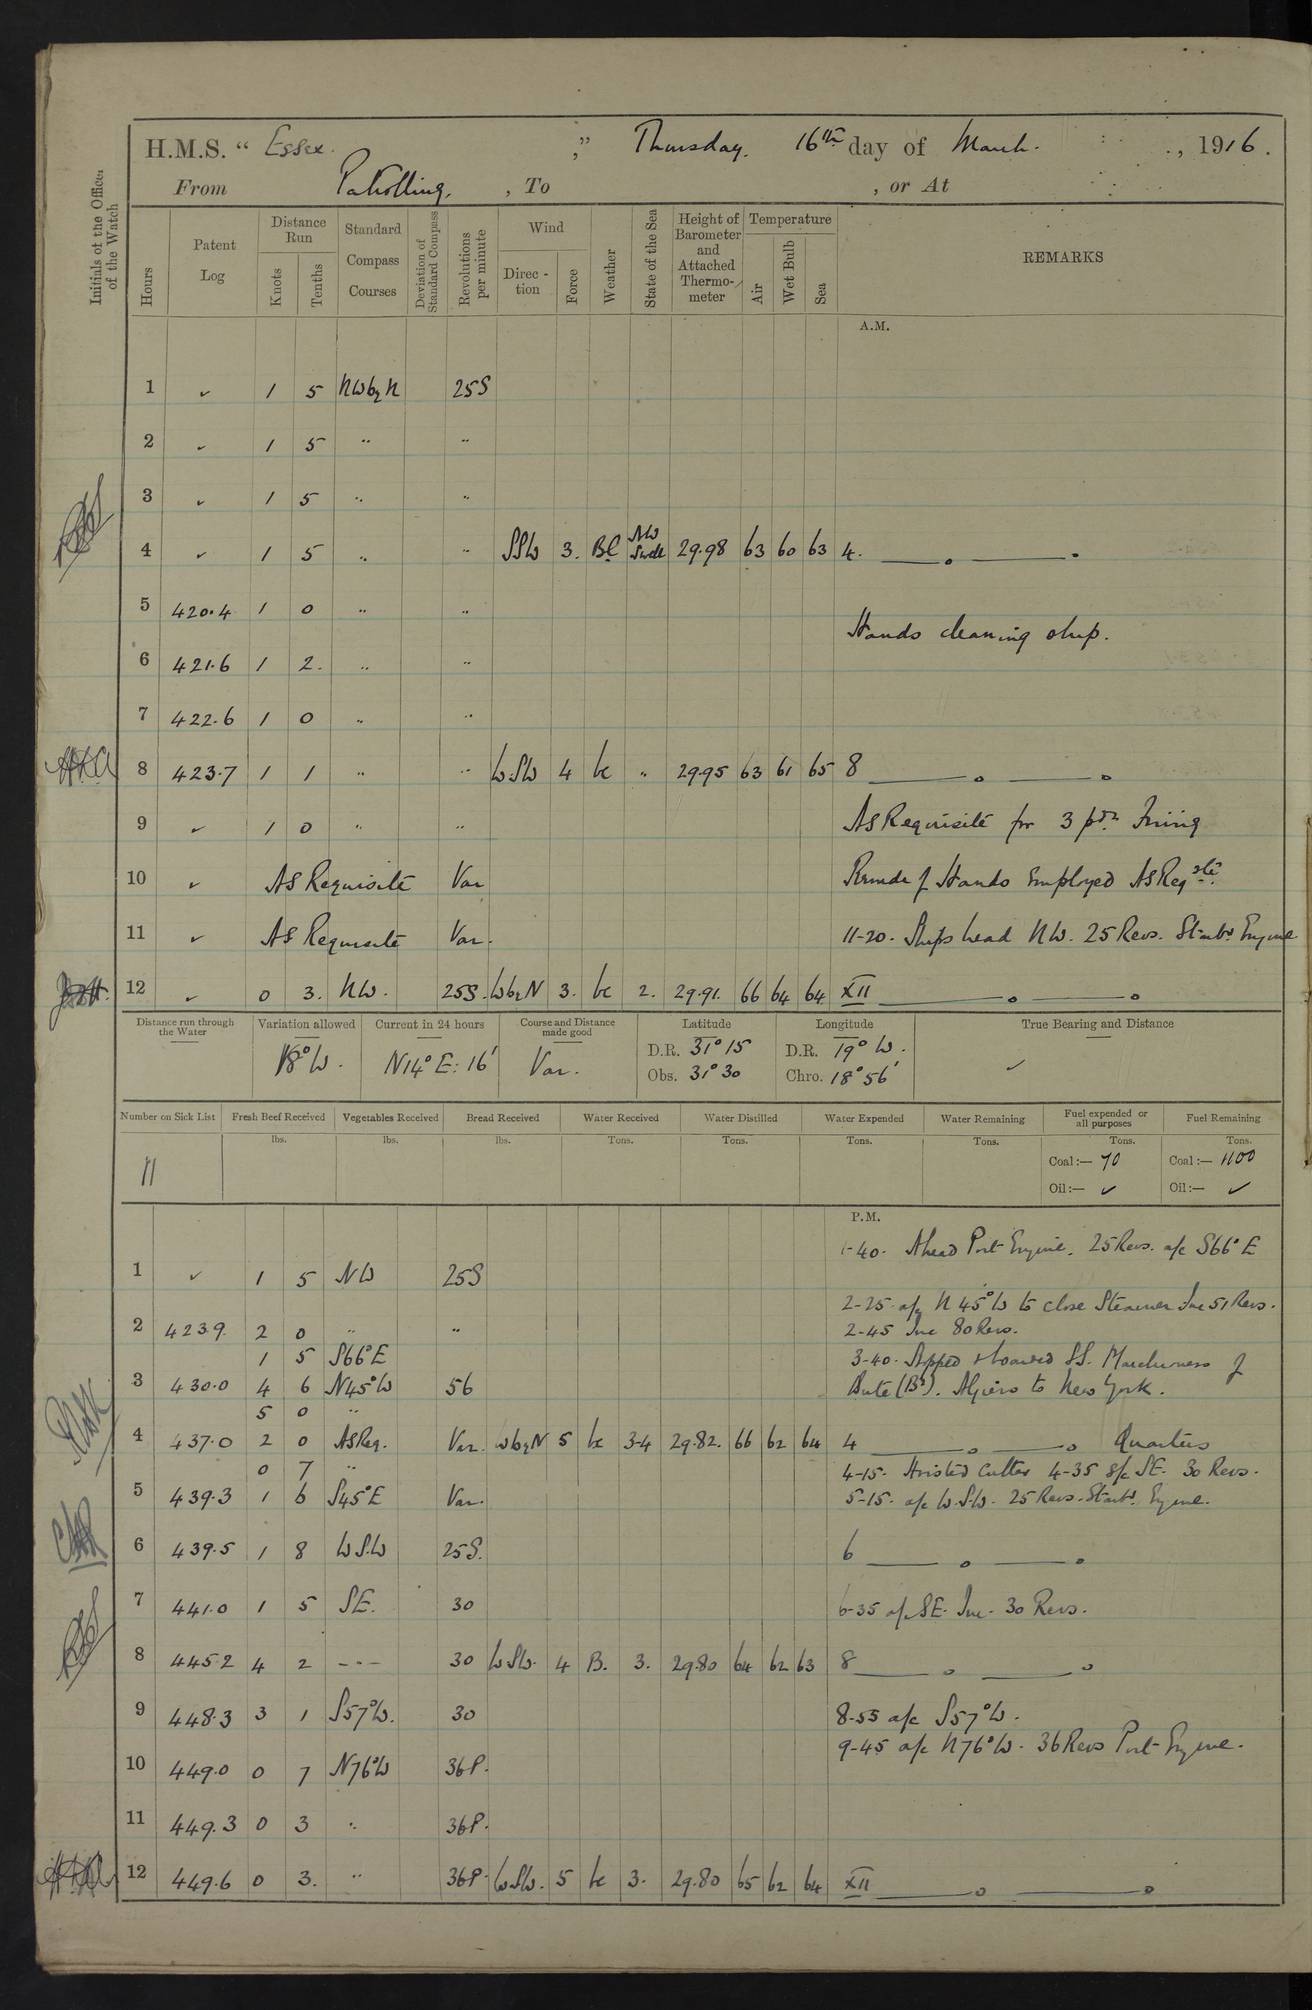 H.M.S. “ Essex. ,” Thursday. 16th day of March. , 1916.
From Patrolling. , To , or At
Initials of the Officer of the Watch
Hours
Patent Log
Distance Run
Knots
Tenths
Standard Compass Courses
Deviation of Standard Compass
Revolutions per minute
Wind
Direction
Force
Weather
State of the Sea
Height of Barometer and Attached Thermometer
Temperature
Air
Wet Bulb
Sea
REMARKS
A.M.
1 ✓ 1 5 NWbyN 25S
2 ✓ 1 5 " "
3 ✓ 1 5 " "
4 ✓ 1 5 " " SSW 3. BC NW Swell 29.98 63 60 63 4.
5 420.4 1 0 " "
Hands cleaning ship.
6 421.6 1 2. " "
7 422.6 1 0 " "
8 423.7 1 1 " " W.SW 4 bc " 29.95 63 61 65 8
9 ✓ 1 0 " " As Requisite for 3 pdr. Firing
10 ✓ As Requisite Var Remdr of Hands Employed As Reqste.
11 ✓ As Requisite Var. 11-20. Ships head NW. 25 Revs. Starbd Engine
12 ✓ 0 3. NW. 25S. WbyN 3. bc 2. 29.91. 66 64 64 XII
Distance run through the Water
Variation allowed 18° W.
Current in 24 hours N14°E: 16'
Course and Distance made good Var.
Latitude
D.R. 31° 15
Obs. 31° 30
Longitude
D.R. 19° W.
Chro. 18° 56'
True Bearing and Distance ✓
Number on Sick List Fresh Beef Received Vegetables Received Bread Received Water Received Water Distilled Water Expended Water Remaining Fuel expended or all purposes Fuel Remaining
lbs. lbs. lbs. Tons. Tons. Tons. Tons. Tons. Tons.
11 Coal:— 70 Coal:— 1100
Oil:— ✓ Oil:— ✓
P.M.
1-40. Ahead Port Engine. 25 Revs. a/c S66°E
1 ✓ 1 5 NW 25S
2-25. a/c N45°W to close Steamer Inc 51 Revs.
2 423.9. 2 0 " " 2-45 Inc 80 Revs.
1 5 S66°E 3-40. Stopped & boarded SS. Marchioness of
3 430.0 4 6 N45°W 56 Bute (Br). Algiers to New York.
5 0 "
4 437.0 2 0 As Req. Var. WbyN 5 bc 3-4 29.82. 66 62 64 4 Quarters
0 7 " 4-15. Hoisted Cutter 4-35 s/c SE. 30 Revs.
5 439.3 1 6 S45°E Var. 5-15. a/c W.S.W. 25 Revs. Starbd. Engine.
6 439.5 1 8 WSW 25S. 6
7 441.0 1 5 SE. 30 6-35 a/c SE. Inc. 30 Revs.
8 445.2 4 2 - - - 30 WSW. 4 B. 3. 29.80 64 62 63 8
9 448.3 3 1 S57°W. 30 8-55 a/c S57°W.
9-45 a/c N76°W. 36 Revs Port Engine.
10 449.0 0 7 N76°W 36P.
11 449.3 0 3 " 36P.
12 449.6 0 3. " 36P. WSW. 5 bc 3. 29.80 65 62 64 XII